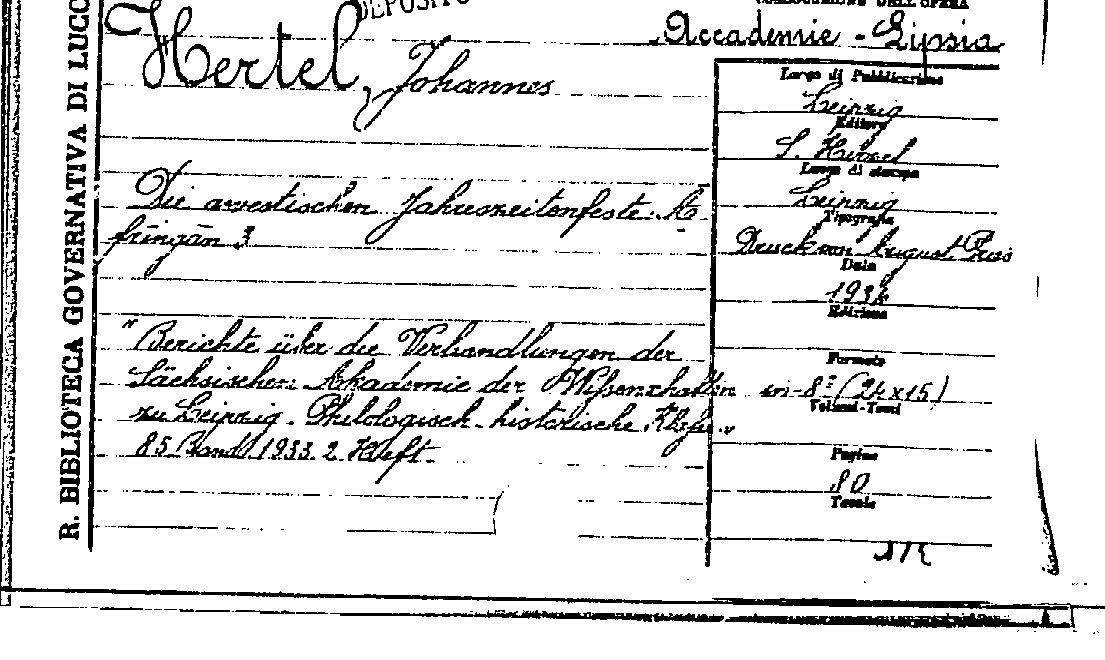 R. BIBLIOTECA GOVERNATIVA DI LUCC
DEPOSITO
Accademie - Lipsia
Hertel, Johannes
Luogo di Pubblicazione
Leipzig
Editore
S. Hirzel
Luogo di stampa
Leipzig
Tipografia
Druck von August Pries
Data
Edizione
Die awestischen Jahreszeitenfeste: A
fringan 3
"Berichte über die Verhandlungen der
Sächsischen Akademie der Wissenschaften
zu Leipzig. Philologisch-historische Klasse"
85 Band 1933. 2 Heft.
Formato
in-8º (24x15)
Volumi-Tomi
Pagine
80
Tavole